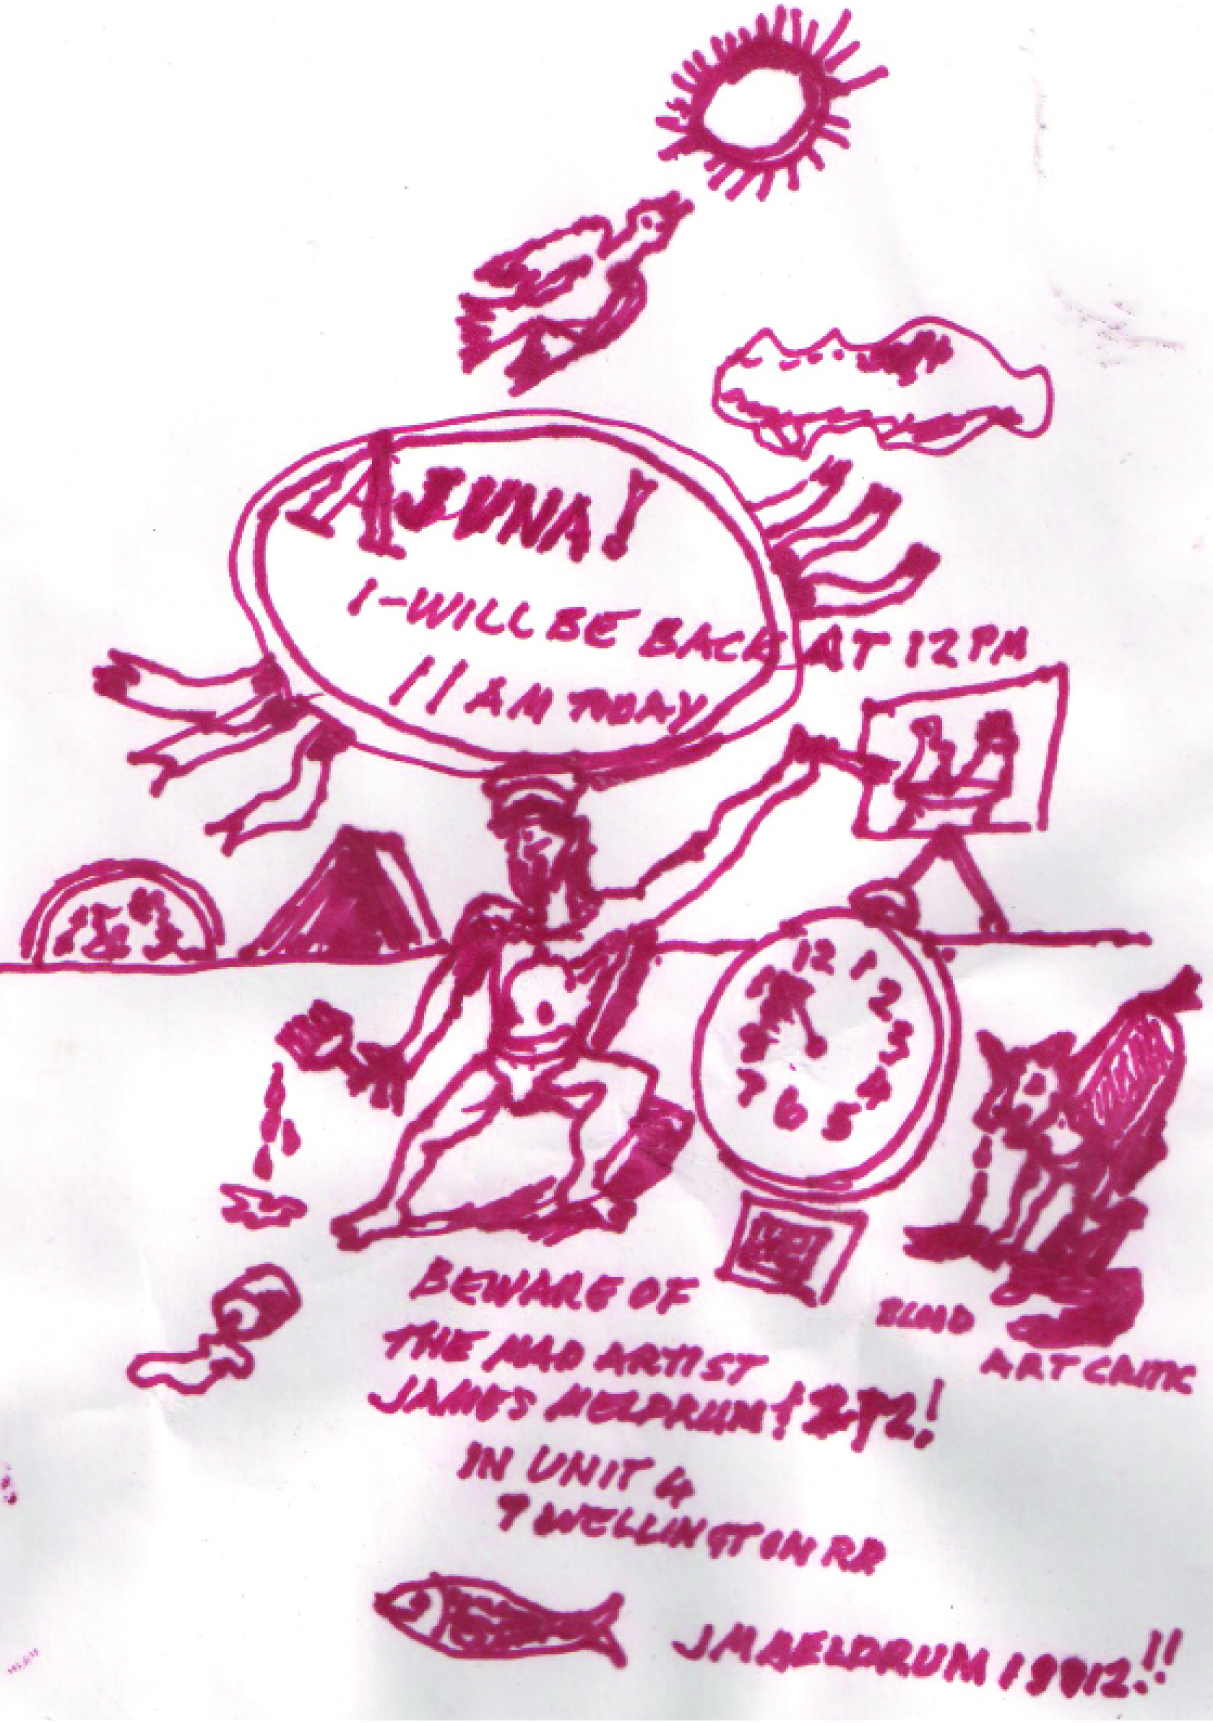 AJUNA!
I-WILL BE BACK AT 12 PM
11 AM TODAY
12 1
2
3
4
7 6 5
BEWARE OF
THE MAD ARTIST
JAMES MELDRUM
IN UNIT 4
9 WELLINGTON RR
ART CRITIC
JMAELDRUM